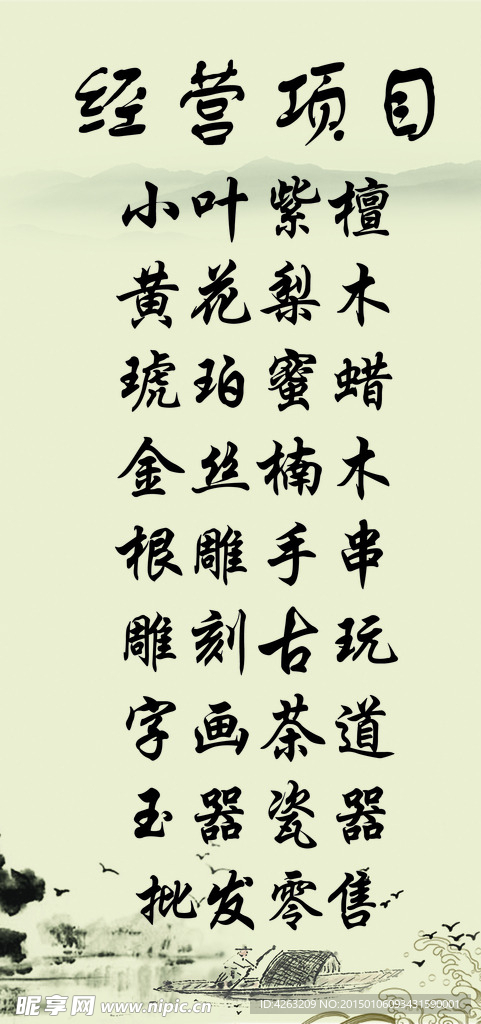 经营项目
小叶紫檀
黄花梨木
琥珀蜜蜡
金丝楠木
根雕手串
雕刻古玩
字画茶道
玉器瓷器
批发零售
昵享网 www.nipic.cn
ID:4263209 NO:20150106093431590001